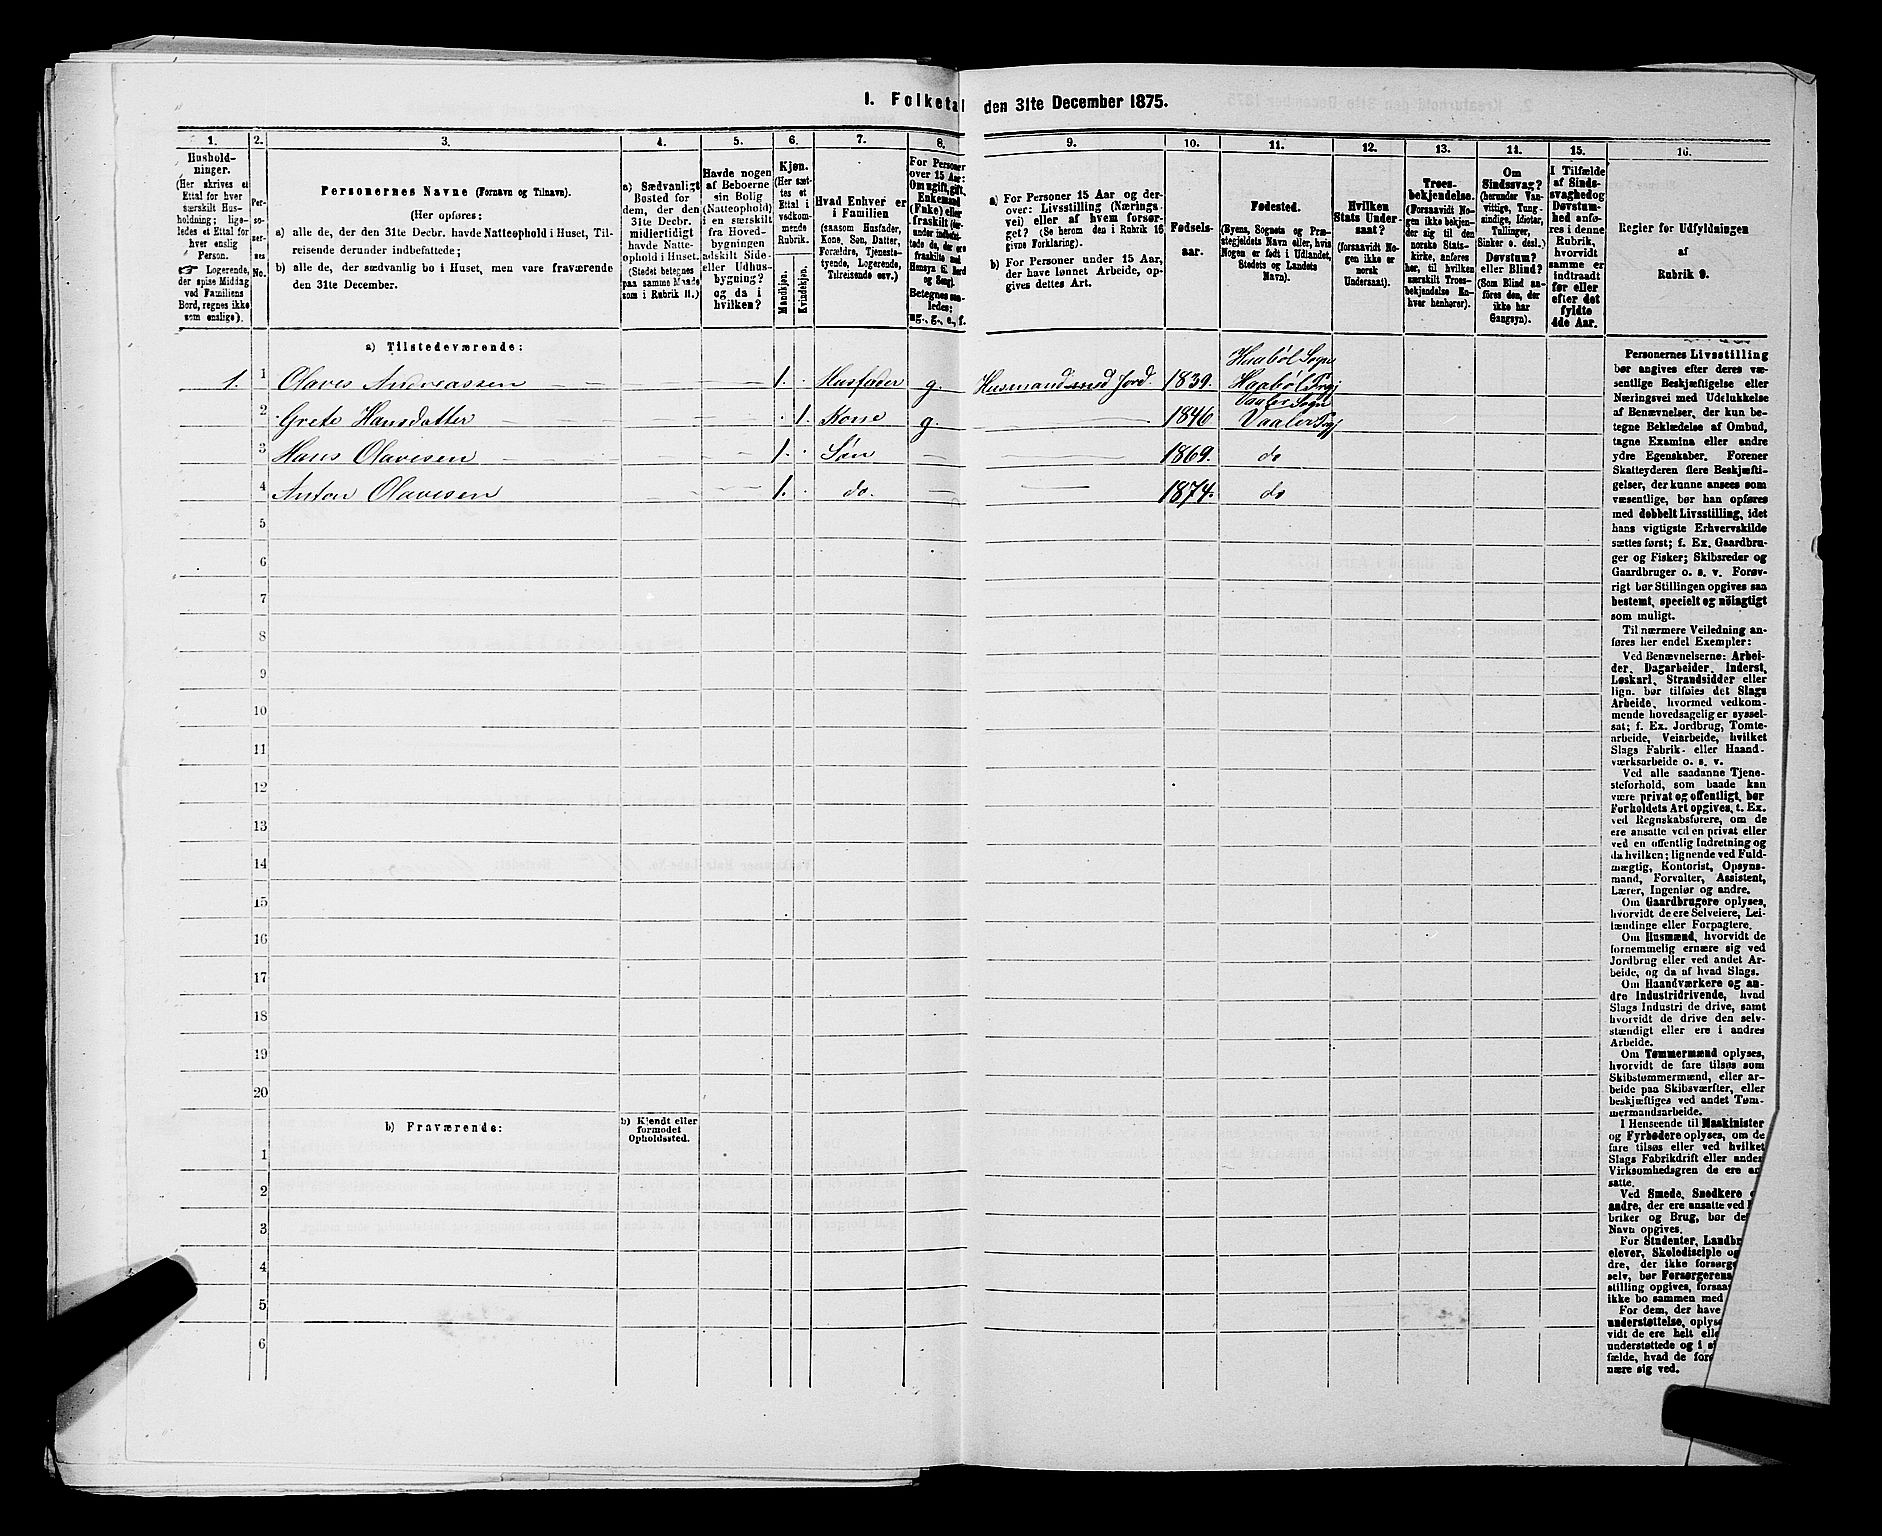 1. Folketal den 31te December 1875.
1. 2. 3. 4. 5. 6. 7. 8. 9. 10. 11. 12. 13. 14. 15. 16.
Hushold-
ninger.
(Her skrives et
Ettal for hver
særskilt Hus-
holdning; lige-
ledes et Ettal for
hver enslig
Person.
☞ Logerende,
der spise Middag
ved Familiens
Bord, regnes ikke
som enslige).
Per-
so-
ner-
nes
No.
Personernes Navne (Fornavn og Tilnavn).
(Her opføres:
a) alle de, der den 31te Decbr. havde Natteophold i Huset, Til-
reisende derunder indbefattede;
b) alle de, der sædvanlig bo i Huset, men vare fraværende
den 31te December.
a) Sædvanligt
Bosted for
dem, der den
31te Decbr.
midlertidigt
havde Natte-
ophold i Huset.
(Stedet betegnes
paa samme Maade
som i Rubrik 11.)
Havde nogen
af Beboerne
sin Bolig
(Natteophold)
i en særskilt
fra Hoved-
bygningen
adskilt Side-
eller Udhus-
bygning?
og da i
hvilken?
Kjøn.
(Her sæt-
tes et
Ettal i
vedkom-
mende
Rubrik.
Mandkjøn.
Kvindekjøn.
Hvad Enhver er
i Familien
(saasom Husfader,
Kone, Søn, Datter,
Forældre, Tjeneste-
tyende, Logerende,
Tilreisende osv.)
For Personer
over 15 Aar:
Om ugift, gift,
Enkemand
(Enke) eller
fraskilt (her-
under indbefat-
tede de, der ere
fraskilte med
Hensyn til Bord
og Seng).
Betegnes saa-
ledes:
ug., g., e., f.
a) For Personer 15 Aar og der-
over: Livsstilling (Nærings-
vei) eller af hvem forsør-
get? (Se herom den i Rubrik 16
givne Forklaring).
b) For Personer under 15 Aar,
der have lønnet Arbeide, op-
gives dettes Art.
Fødsels-
aar.
Fødested.
(Byens, Sognets og Præ-
stegjeldets Navn eller, hvis
Nogen er født i Udlandet,
Stedets og Landets
Navn).
Hvilken
Stats Under-
saat?
(forsaavidt No-
gen ikke er
norsk
Undersaat).
Troes-
bekjendelse.
(Forsaavidt No-
gen ikke bekjen-
der sig til den
norske Stats-
kirke, anføres
her, til hvilken
særskilt Troes-
bekjendelse En-
hver henhører).
Om
Sindssvag?
(herunder Van-
vittige, Tung-
sindige, Idioter,
Tullinger,
Sinker o. desl.)
Døvstum?
eller Blind?
(Som Blind an-
føres den, der
ikke har
Gangsyn).
I Tilfælde
af Sinds-
svaghed og
Døvstum-
hed anfø-
res i denne
Rubrik,
hvorvidt
samme er
indtraadt
før eller
efter det
fyldte
4de Aar.
Regler for Udfyldningen
af
Rubrik 9.
a) Tilstedeværende:
1. 1 Olaves Andreassen — — 1. Husfader g. Husmand med Jord. 1839. Haabøl Sogn Haabøl Prgj
2 Grete Hansdatter — — 1. Kone g. — 1846 Vaaler Sogn Vaaler Prgj
3 Hans Olavesen — — 1. Søn — — 1869. do
4 Anton Olavesen — — 1. do. — — 1874. do
5
6
7
8
9
10
11
12
13
14
15
16
17
18
19
20
b) Fraværende:
b) Kjendt eller
formodet
Opholdssted.
1
2
3
4
5
6
Personernes Livsstilling
bør angives efter deres væ-
sentlige Beskjæftigelse eller
Næringsvei med Udelukkelse
af Benævnelser, der kun be-
tegne Beklædelse af Ombud,
tagne Examina eller andre
ydre Egenskaber. Forener
Skatteyderen flere Beskjæfti-
gelser, der kunne ansees som
væsentlige, bør han opføres
med dobbelt Livsstilling, idet
hans vigtigste Erhvervskilde
sættes først; f. Ex. Gaardbru-
ger og Fisker; Skibsreder og
Gaardbruger o. s. v. Forøv-
rigt bør Stillingen opgives saa
bestemt, specielt og nöiagtigt
som muligt.
Til nærmere Veiledning an-
føres her endel Exempler:
Ved Benævnelserne: Arbei-
der, Dagarbeider, Inderst,
Løskarl, Strandsidder eller
lign. bør tilføies det Slags
Arbeide, hvormed vedkom-
mende hovedsagelig er syssel-
sat; f. Ex. Jordbrug, Tomte-
arbeide, Veiarbeide, hvilket
Slags Fabrik- eller Haand-
værksarbeide o. s. v.
Ved alle saadanne Tjene-
steforhold, som baade kan
være privat og offentligt, bør
Forholdets Art opgives, t. Ex.
ved Regnskabsførere, om de
ere ansatte ved en privat eller
ved en offentlig Indretning og
da hvilken; lignende ved Fuld-
mægtig, Kontorist, Opsyns-
mand, Forvalter, Assistent,
Lærer, Ingeniør og andre.
Om Gaardbrugere oplyses,
hvorvidt de ere Selveiere, Lei-
lændinge eller Forpagtere.
Om Husmænd, hvorvidt de
fornemmelig ernære sig ved
Jordbrug eller ved andet Ar-
beide, og da af hvad Slags.
Om Haandværkere og an-
dre Industridrivende, hvad
Slags Industri de drive, samt
hvorvidt de drive den selv-
stændigt eller ere i andres
Arbeide.
Om Tømmermænd oplyses,
hvorvidt de fare tilsøs som
Skibstømmermænd, eller ar-
beide paa Skibsværfter, eller
beskjæftiges ved andet Tøm-
mermandsarbeide.
I Henseende til Maskinister
og Fyrbødere oplyses, om de
fare tilsøs eller ved hvilket
Slags Fabrikdrift eller anden
Virksomhedsgren de ere an-
satte.
Ved Smede, Snedkere
andre, der ere ansatte ved
briker og Brug, bør de
Navn opgives.
For Studenter, Landbr
elever, Skoledisciple og
dre, der ikke forsørge
selv, bør Forsørgerens
stilling opgives, forsaa
ikke bo sammen med
For dem, der have
understøttelse, oplyse
vidt de ere helt elle
understøttede og i s
fælde, hvad de for
nære sig ved.